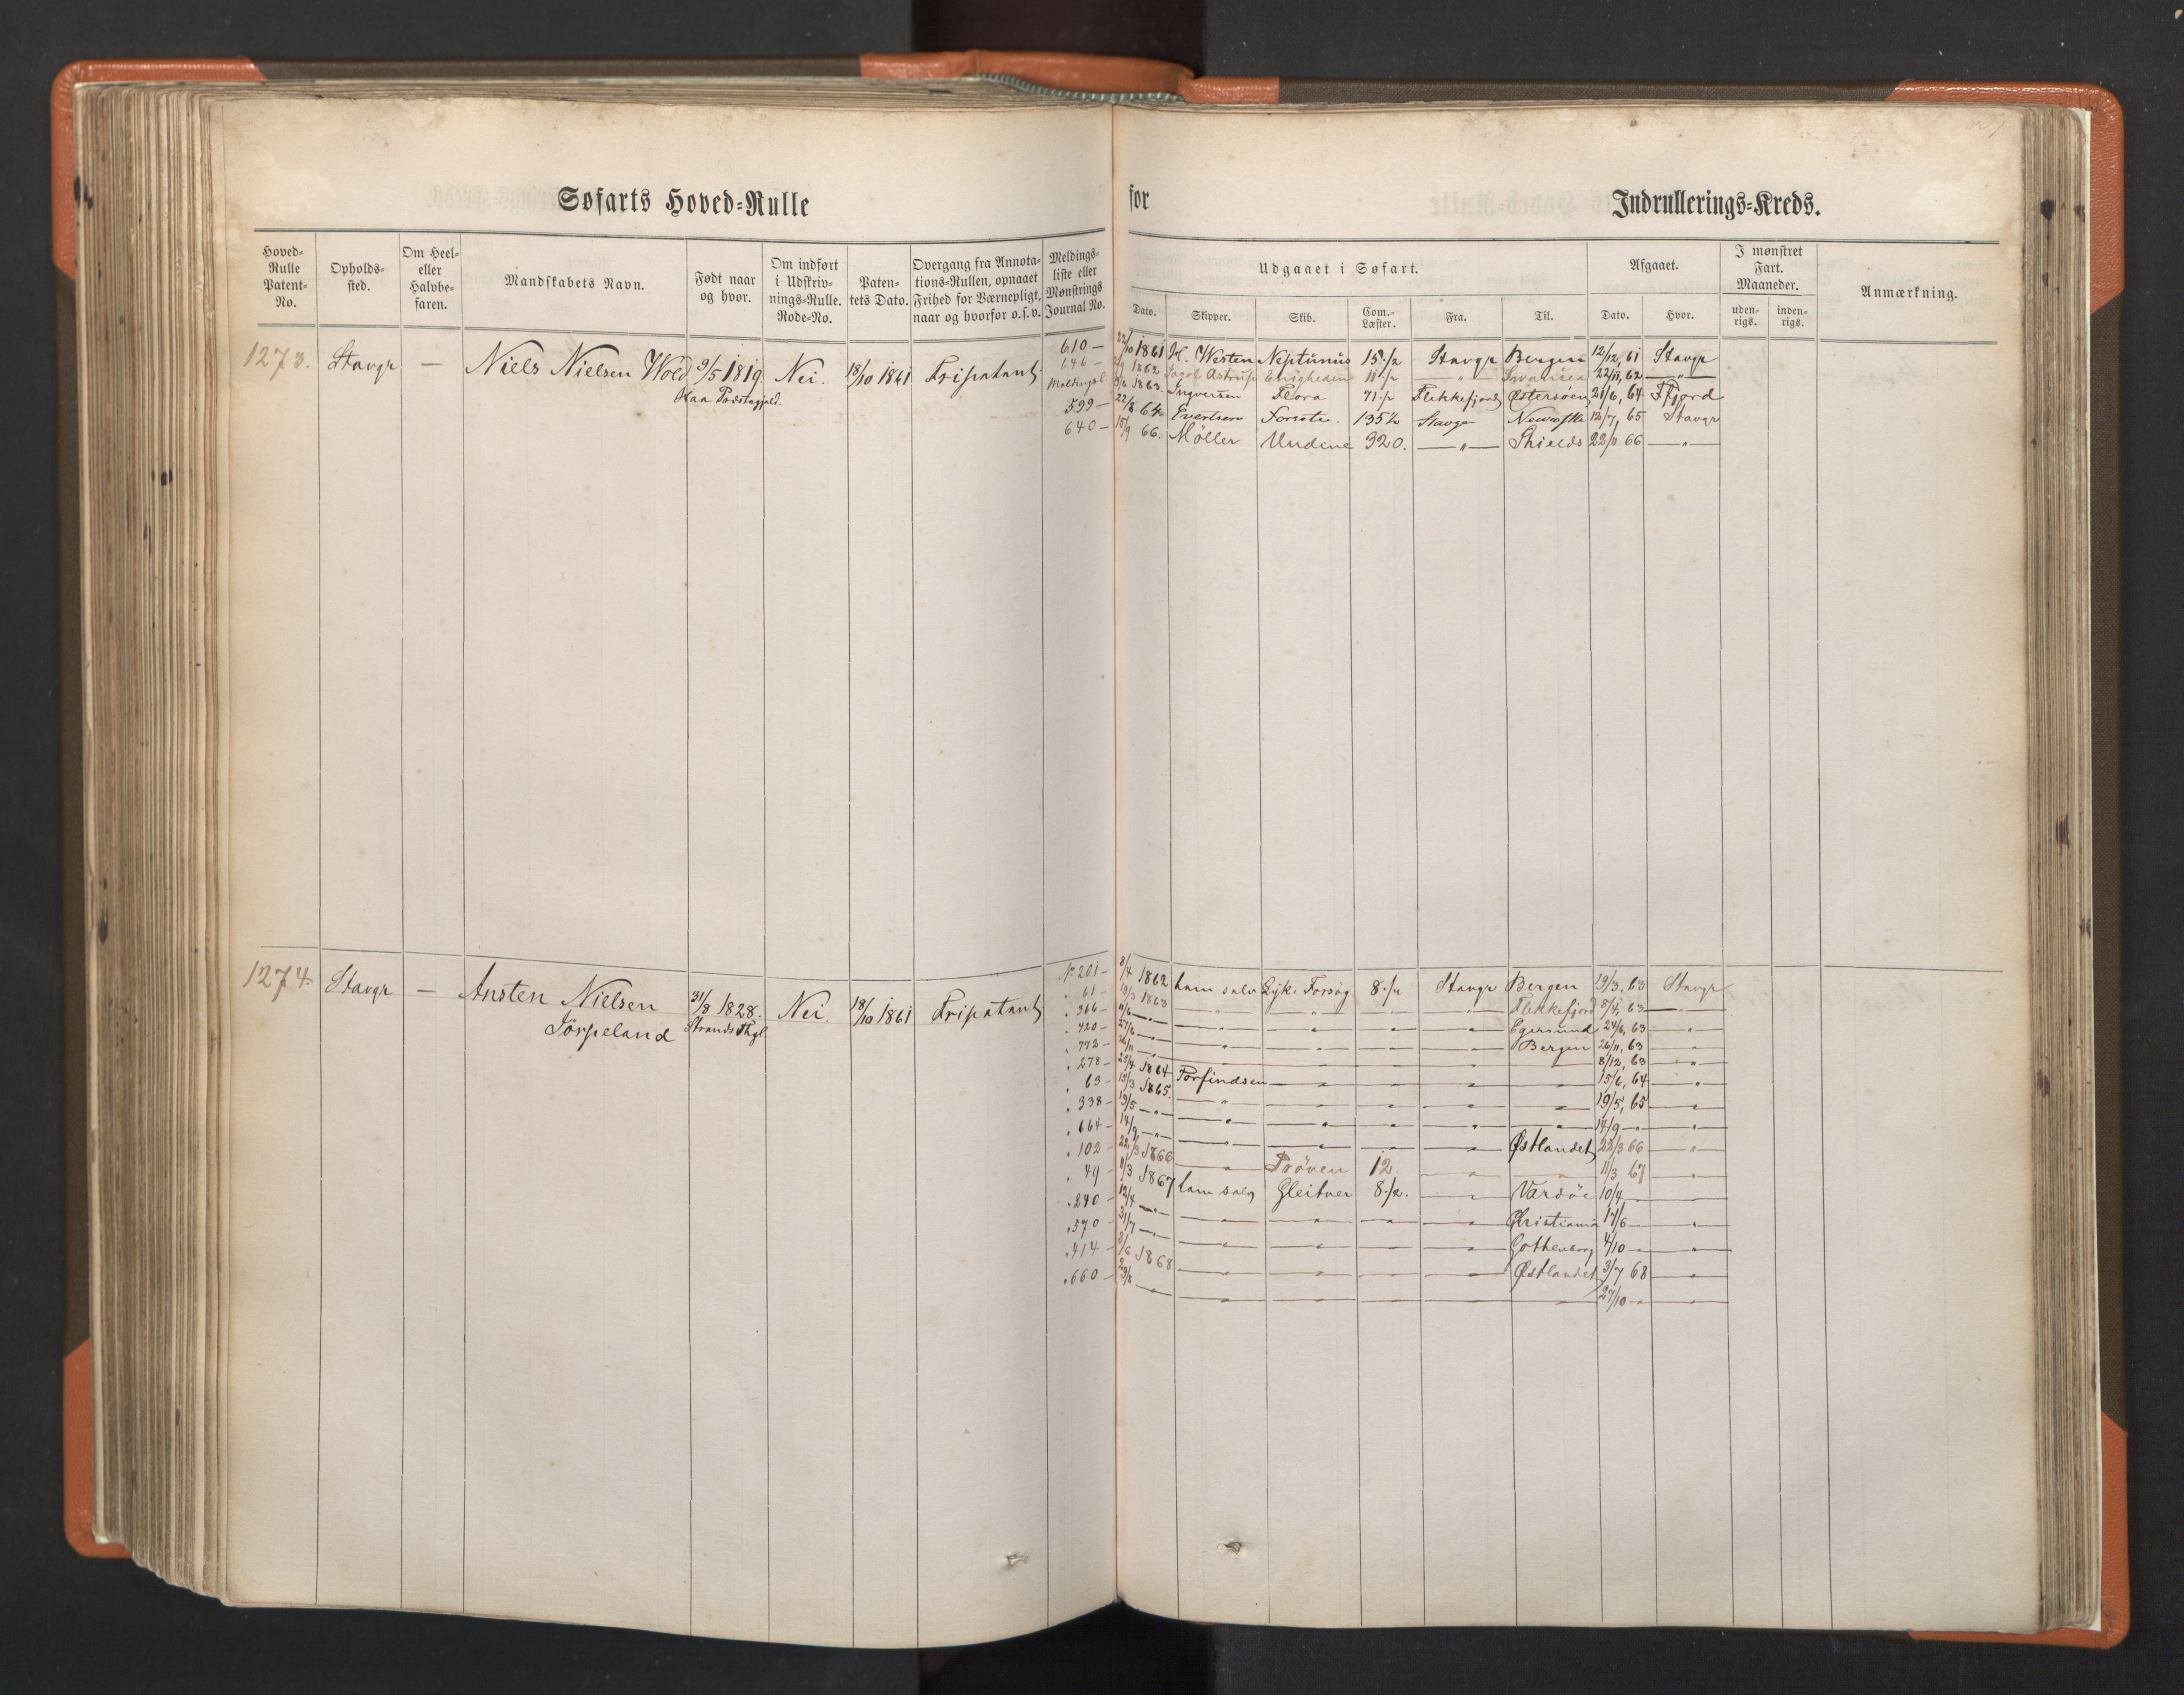 Søfarts Hoved-Rulle
for
Indrullerings-Kreds.
Hoved-Rulle Patent-No.
Opholds-sted.
Om Heel- eller Halvbe-faren.
Mandskabets Navn.
Født naar og hvor.
Om indført i Udskriv-nings-Rulle. Rode-No.
Paten-tets Dato.
Overgang fra Annota-tions-Rullen, opnaaet Frihed for Værnepligt, naar og hvorfor o.s.v.
Meldings-liste eller Mønstrings Journal No.
Udgaaet i Søfart.
Dato. Skipper. Skib. Com.-Læster. Fra. Til.
Afgaaet.
Dato. Hvor.
I mønstret Fart. Maaneder.
uden-rigs. inden-rigs.
Anmærkning.
1273. Stavgr — Niels Nielsen Wold 9/5 1819 Nei. 18/10 1861 Fripatent
610 — 22/10 1861 H. Westen Neptunus 15 1/2 Stavgr Bergen 12/12, 61 Stavgr
646 — 1862 Jacob Astrup Enigheden 11 1/2 — " — Swansea 22/11, 62 — " —
1863 Ingversen Flora 71 1/2 Flekkefjord Østersøen 21/6, 64 Ffjord
599 — 22/8 64 Evertsen 135 1/2 Stavgr 12/7, 65 Stavgr
640 — 15/9 66. Möller Undine 320. — " — Shields 22/11 66 — " —
1274. Stavgr — Ansten Nielsen 31/8 1828. Nei. 18/10 1861 Fripatent
Jörpeland Strands Thgl.
No 201 — 8/4 1862 ham selv Forsøg 8 1/2 Stavgr Bergen 19/3, 63 Stavgr
" 61 — 19/3 1863 — " — — " — — " — Flekkefjord 8/4, 63 — " —
" 366 — 11/6 — " — — " — — " — — " — Egersund 24/6, 63 — " —
" 420 — 27/6 — " — — " — — " — — " — Bergen 26/11, 63 — " —
" 772 — 26/11 — " — 8/12, 63 — " —
" 278 — 25/4 1864 Torfindsen — " — — " — — " — 15/6, 64 — " —
" 63 — 15/3 1865. — " — — " — — " — — " — 19/5, 65 — " —
" 338 — 19/5 — " — — " — — " — — " — — " — 14/9 — " — — " —
" 664 — 14/9 — " — — " — — " — — " — Østlandet 22/3 66 — " —
" 102 — 22/3 1866 — " — Pröven 12. — " — — " — 11/3 67 — " —
" 49 — 11/3 1867 ham selv Gleitner 8 1/2. — " — Vardöe 10/4 — " —
" 240 — 12/4 — " — — " — — " — — " — — " — Christiania 17/6 — " —
" 570 — 31/7 — " — — " — — " — — " — — " — Gothenborg 4/10 — " —
" 414 — 3/6 1868 — " — — " — — " — — " — Østlandet 3/7 68 — " —
" 660 — — " — — " — — " — — " — — " — — " — 27/10 — " — — " —